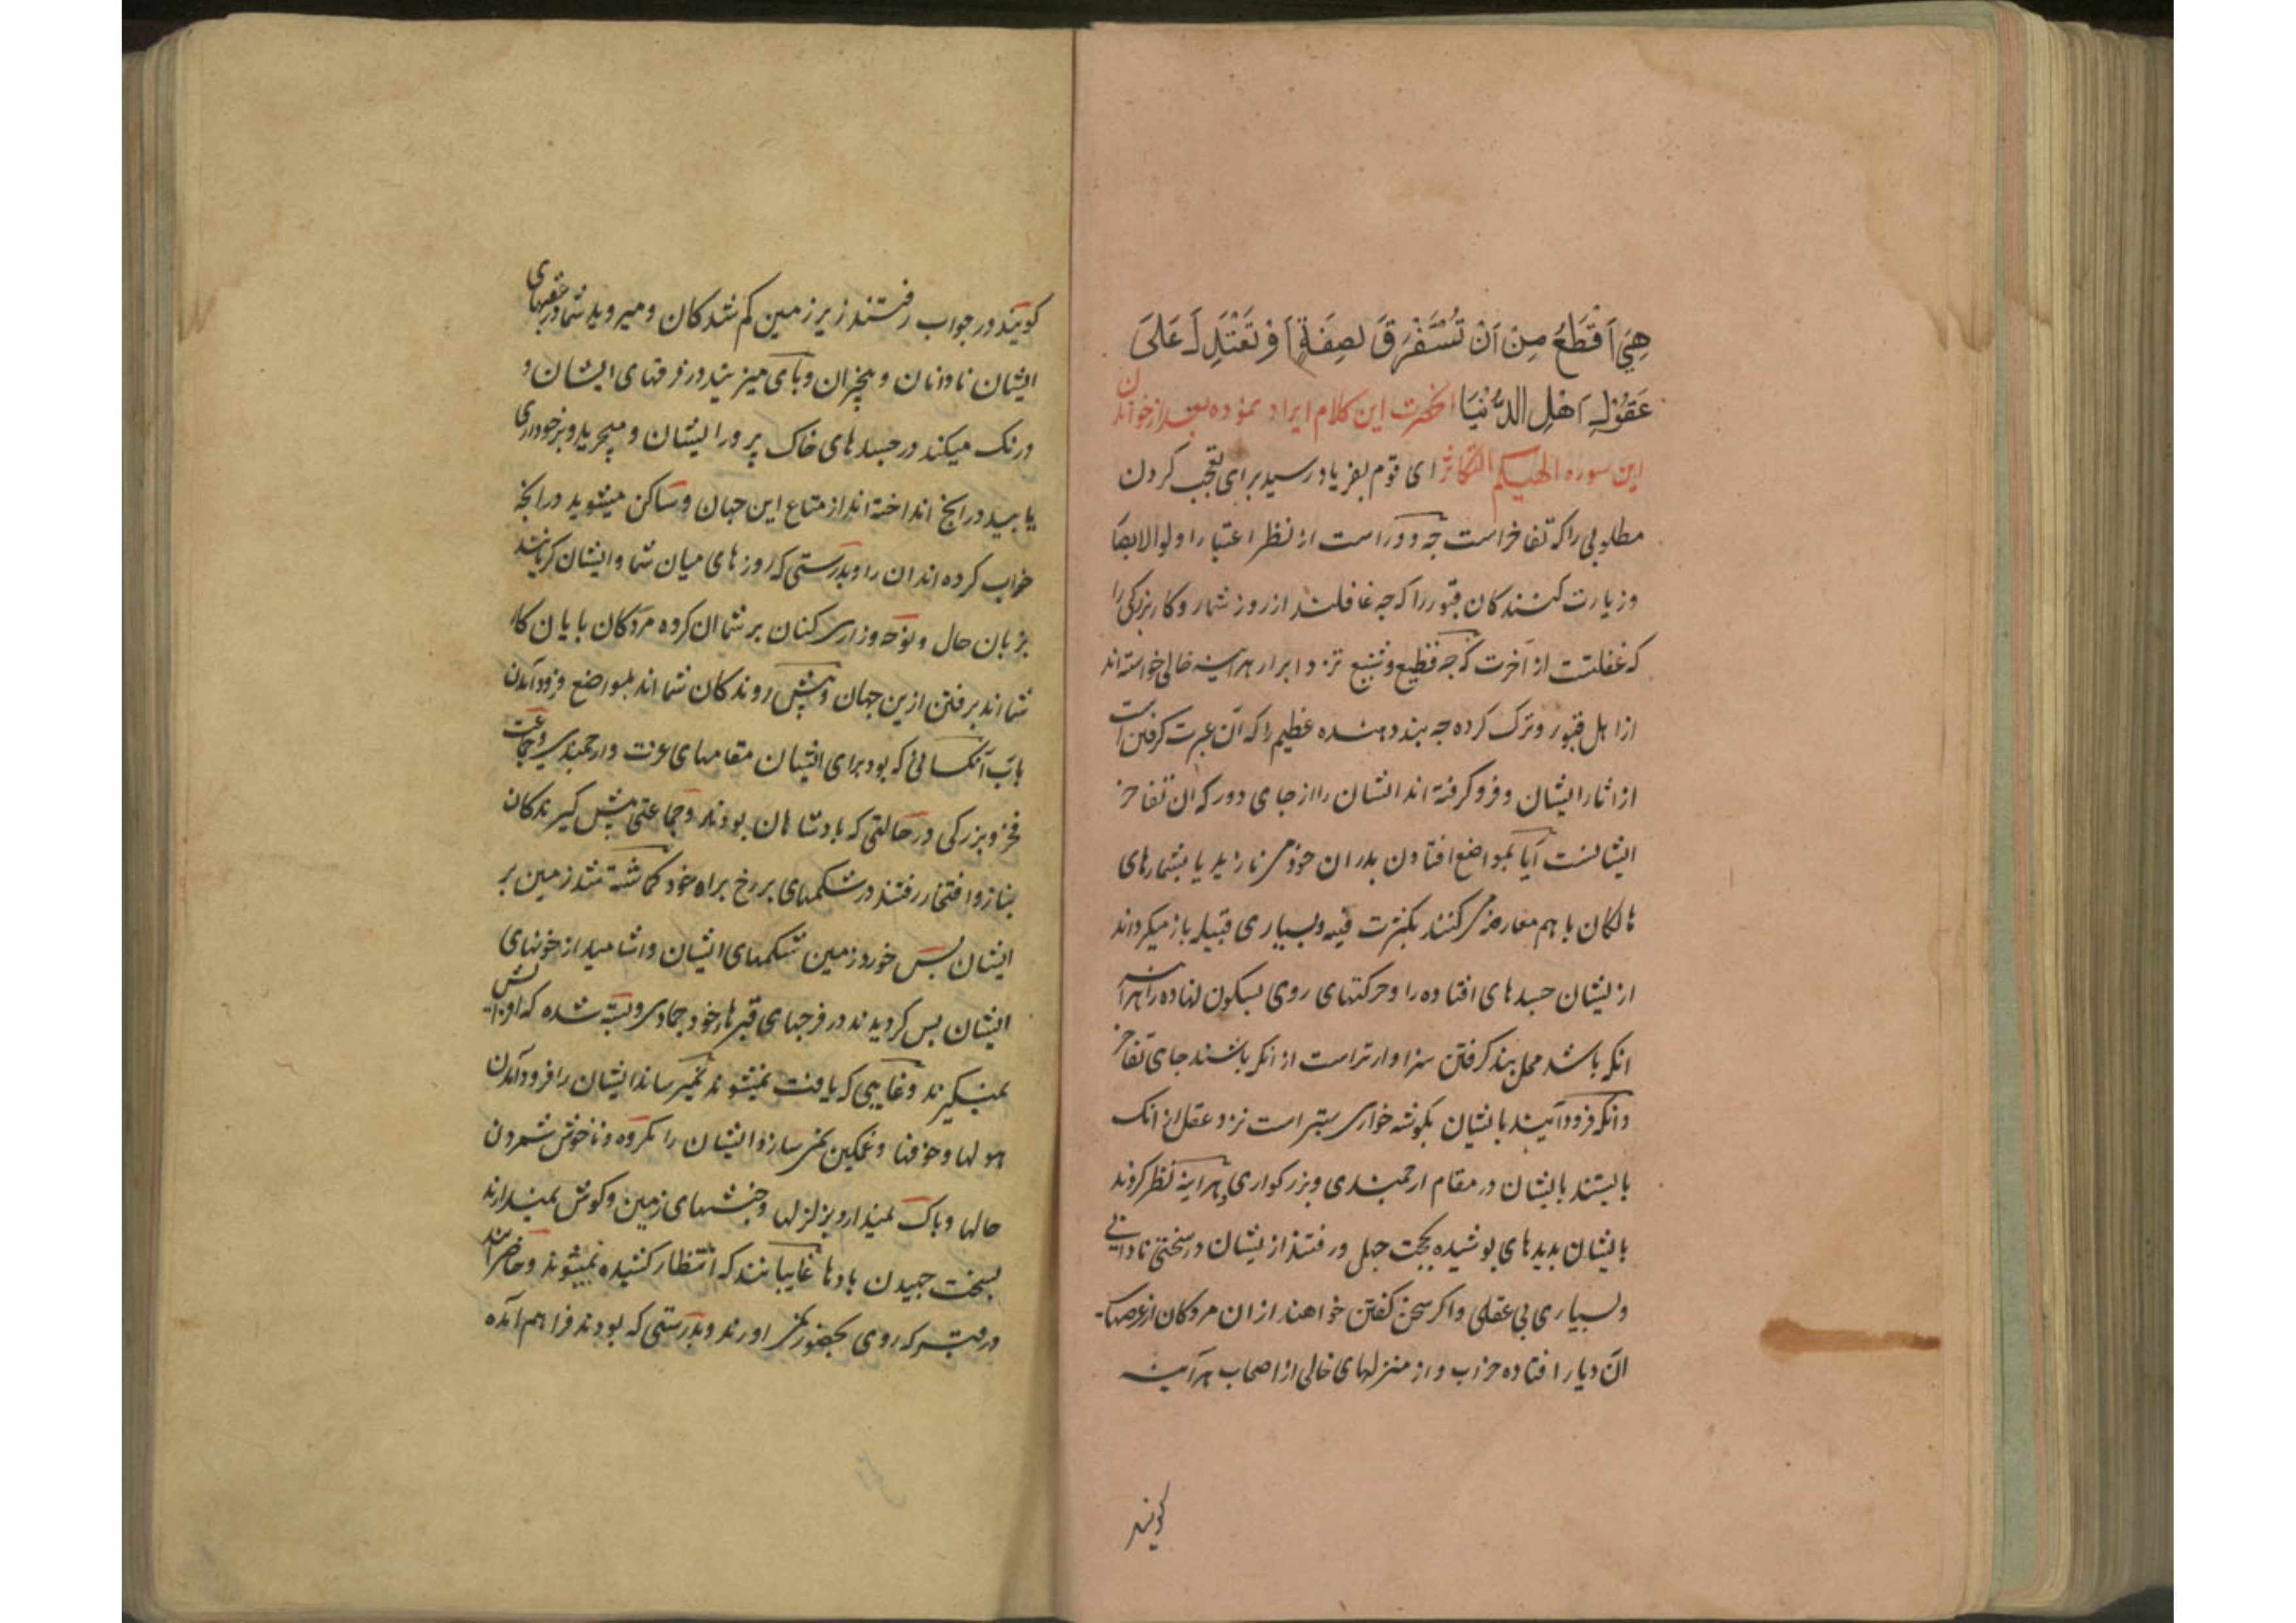 هِيَ اَفْظَعُ مِنْ اَنْ تُسْتَغْرَقَ بِصِفَةٍ اَوْ تَعْتَدِلَ عَلَى
عُقُولِ اَهْلِ الدُّنْيَا انحضرت این کلام ایراد نموده بعد از خواندن
این سوره الهیکم التکاثر ای قوم بفریاد رسید برای تعجب کردن
مطلوبی را که تفاخر است چه دور است از نظر اعتبار اولوالابصار
و زیارت کنندکان قبور را که چه غافلند از روز شمار و کار بزرکی را
که غفلتست از آخرت که چه فظیع و شنیع نزد ابرار هراینه خالی خواسته اند
از اهل قبور و ترک کرده چه پند دهنده عظیم را که آن عبرت کرفتن است
از اثار ایشان و فرو کرفته اند ایشان را از جای دور که ان تفاخر
ایشانست آیا بمواضع افتادن پدران خود می نازید یا بشمارهای
هالکان با هم معارضه می کنند بکثرت فیه و بسیاری قبیله باز میکرداند
از یشان جسدهای افتاده را و حرکتهای روی بسکون نهاده را هراینه
انکه باشد محل پند کرفتن سزاوارتر است از انکه باشند جای تفاخر
و انکه فرود آیند بایشان بکوشه خواری ستر است نزد عقل از انک
بایستند بایشان در مقام ارجمندی و بزرکواری هراینه نظر کردند
بایشان بدیدهای پوشیده بجهت جهل و رفتند از یشان در سختی نادانی
و بسیاری بی عقلی و اکر سخن کفتن خواهند از ان مردکان از عرصهای
ان دیار افتاده خراب و از منزلهای خالی از اصحاب هرآینه
کویند
کویند در جواب رفتند زیر زمین کم شدکان و میروید شما در عقبهای
ایشان نادانان و بیخبران و پای میزنید در فرقهای ایشان و
درنک میکنید در جسدهای خاک پرور ایشان و میچرید و برخورداری
یابید در انچ انداخته اند از متاع این جهان و ساکن میشوید در انچه
خراب کرده اند ان را و بدرستی که روزهای میان شما و ایشان کریانند
بزبان حال و نوحه و زاری کنان بر شما ان کروه مردکان پایان کار
شما اند برفتن ازین جهان و پیش روندکان شما اند بمواضع فرود آمدن
باب آنکسانی که بود برای ایشان مقامهای عزت و ارجمندی و جماعت
فخر و بزرکی در حالتی که پادشاهان بودند و جماعتی پیش کیرندکان
بناز و افتخار رفتند در شکمهای برزخ براه خود کماشته شد زمین بر
ایشان پس خورد زمین شکمهای ایشان و اشامید از خونهای
ایشان پس کردیدند در فرجهای قبرهای خود جمادی و بسته شده که افزایش
نمیکیرند و غایبی که یافت نمیشوند نمیرساند ایشان را فرود آمدن
هولها و خوفها و غمکین نمی سازد ایشان را مکروه و ناخوش شمردن
حالها و باک نمیدارد بزلزلها و جنبشهای زمین و کوش نمیدارند
بسخت جهیدن بادها غایبانند که انتظار کشیده نمیشوند و حاضرانند
در قبر که روی بحضور نمی اورند و بدرستی که بودند فراهم آمده